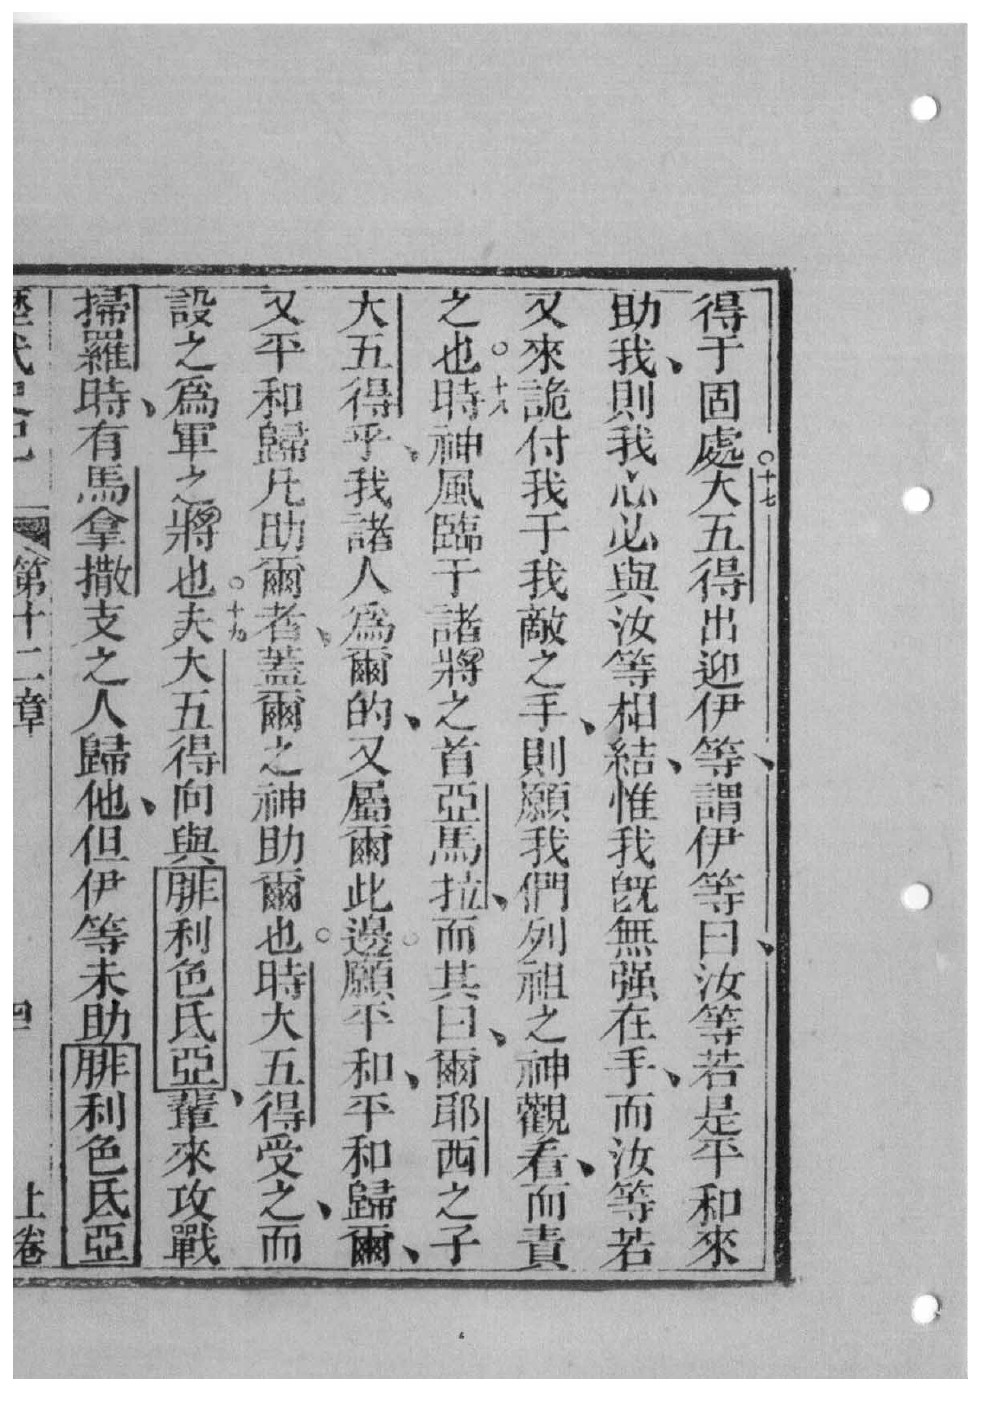 得于固處。十七大五得出迎伊等、謂伊等曰、汝等若是平和來
助我、則我心必與汝等相結、惟我旣無强在手、而汝等若
又來詭付我于我敵之手、則願我們列祖之神觀看、而責
之也。十八時神風臨于諸將之首亞馬拉、而其曰、爾耶西之子
大五得乎、我諸人爲爾的、又屬爾此邊。願平和、平和歸爾、
又平和歸凡助爾者、蓋爾之神助爾也。時大五得受之、而
設之爲軍之將也。十九夫大五得向與腓利色氏亞輩、來攻戰
掃羅時、有馬拿撒支之人歸他、但伊等未助腓利色氏亞
歷代史記 第十二章 四 上卷